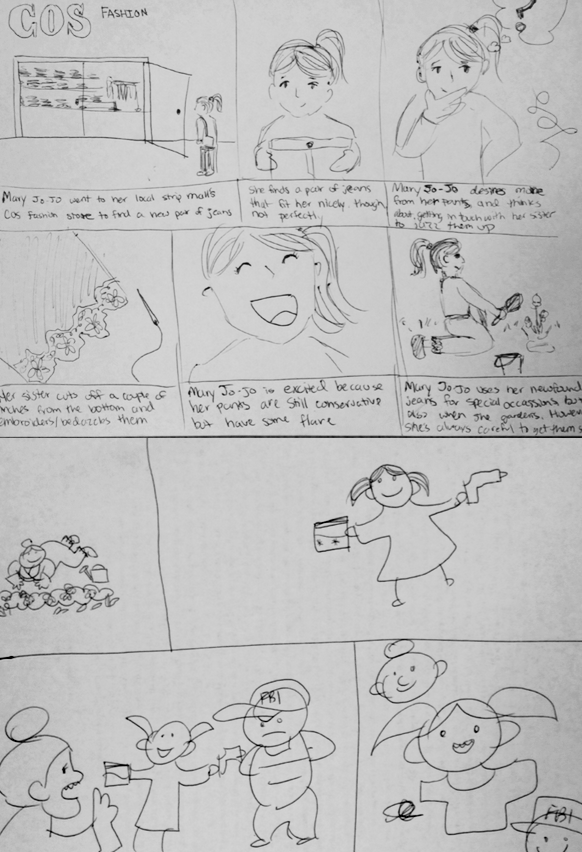 COS FASHION
Mary Jo-Jo went to her local strip mall's
Cos Fashion store to find a new pair of jeans
She finds a pair of jeans
that fit her nicely, though
not perfectly
Mary Jo-Jo desires more
from her pants, and thinks
about getting in touch with her sister
to jazz them up
?
Her sister cuts off a couple of
inches from the bottom and
embroiders/bedazzles them
Mary Jo-Jo is excited because
her pants are still conservative
but have some flare
Mary Jo-Jo uses her newfound
jeans for special occassions but
also when she gardens. However
she's always careful to get them
FBI
FBI